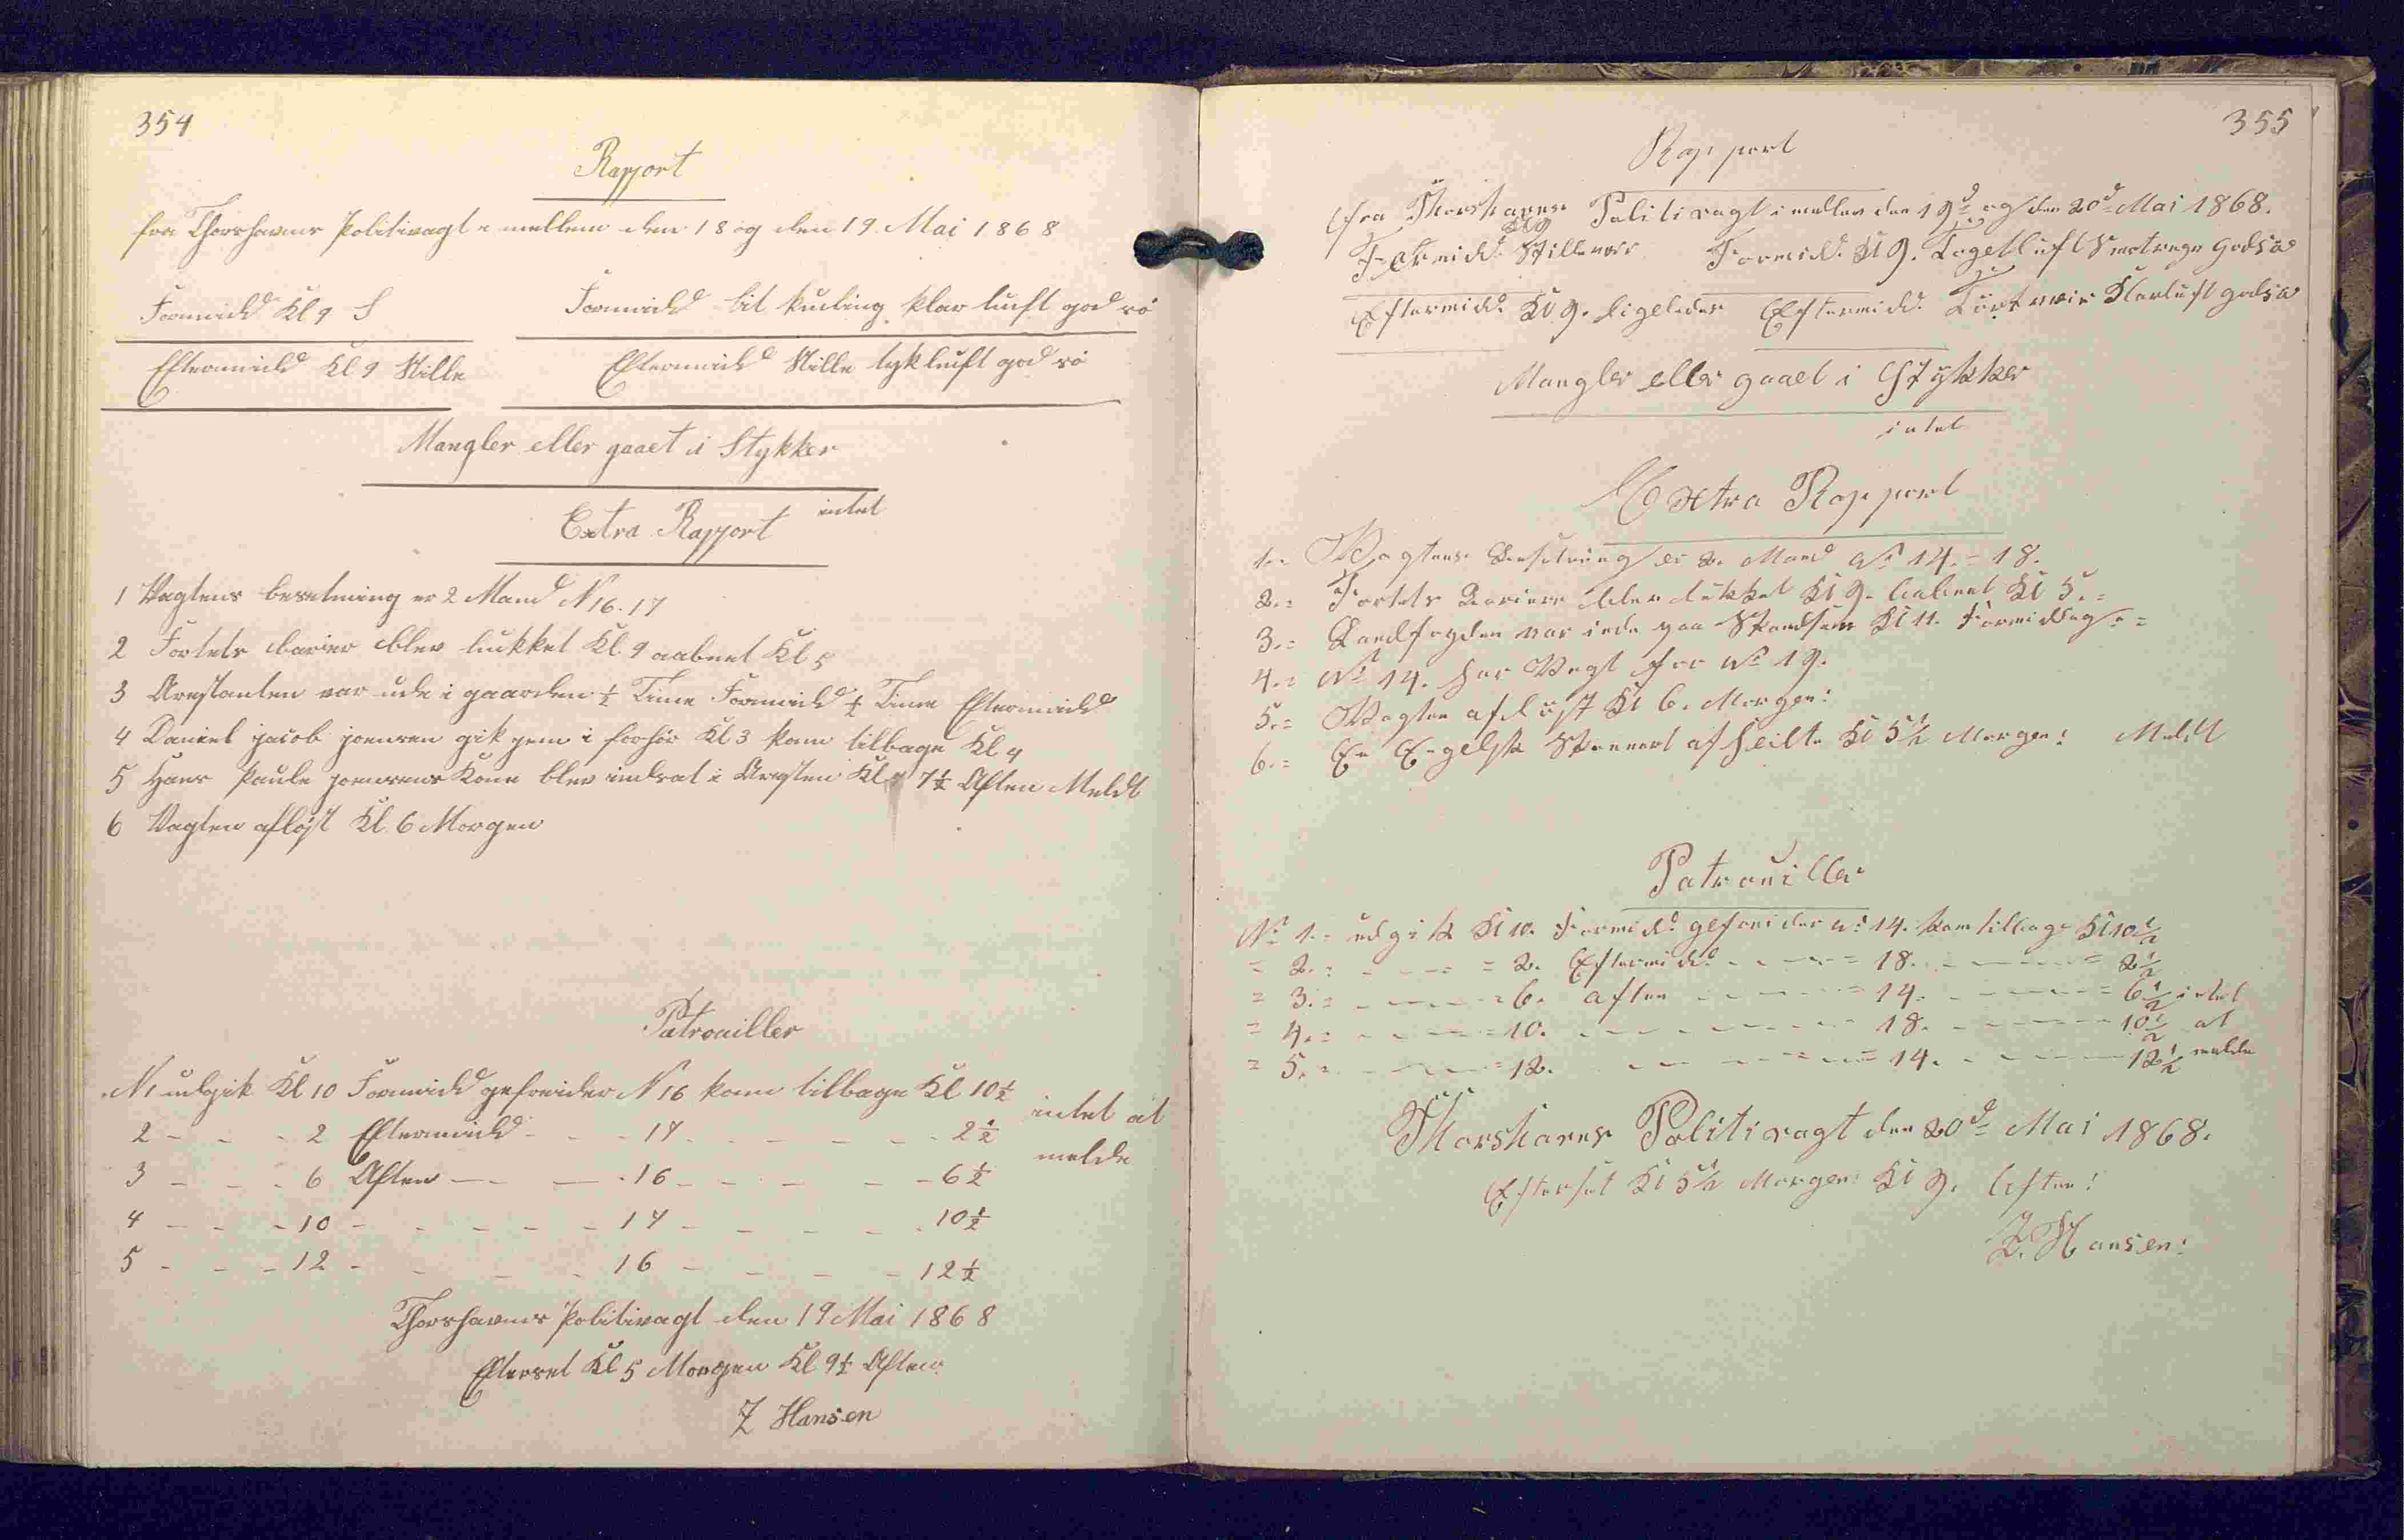 354
Rapport
fra Thorshavns Politivagt i mellem den 18 og den 19 Mai 1868
Formidd Kl 9 S
Formidd lit kuling klar luft god sö
Eftermidd Kl 9 Stille
Eftermidd Stille tyk luft god sö
Mangler eller gaaet i Stykker
intet
Extra Rapport
1 Vagtens besetning er 2 Mand N 16. 17
2 Fortets barier blev lukket Kl 9 aabnet Kl 5
3 Arestanten var ude i gaarden ½ Time Formidd ½ Time Eftermidd
4 Daniel jacob joensen gik hjem i forhör Kl 3 kom tilbage Kl 4
5 Hans Paule joensens Kone blev indsat i Aresten Kl 7½ Aften Meldt
6 Vagten aflöst Kl. 6 Morgen
Patrouiller
N 1 udgik Kl 10 Formidd gefreider N 16 kom tilbage Kl 10½
intet at
2 - - - 2 Eftermidd - - - 17 - - - - - 2½
melde
3 - - - 6 Aften - - - 16 - - - - - 6½
4 - - - 10 - - - - - 17 - - - - - 10½
5 - - - 12 - - - - - 16 - - - - - 12½
Thorshavns Politivagt den 19 Mai 1868
Efterset Kl 5 Morgen Kl 9½ Aften
Z Hansen
355
Rapport
fra Thorshavns Politivagt i mellem den 19d og den 20d Mai 1868.
Kl 9
Formidd. Stille veir Formidd. Kl 9. Taget luft god sö
Eftermidd. Kl 9. ligeledes Eftermidd. Tört veir Klar luft god sö
Mangler eller gaaet i Stykker
intet
Extra Rapport
1.= Vagtens Besetning er 2. Mand No 14. = 18.
2.= Fortets Bariere blev lukket Kl 9. aabent Kl 5.=
3.= Landfogden var inde paa Skandsen Kl 11. Formiddag.=
4.= No 14. har Vagt for No 19.
5.= Vagten aflöst Kl 6. Morgen:
6.= En Engelsk Skonnert afseilte Kl 5½ Morgen: Meldt
Patrouille
No 1.= udgik Kl 10. Formidd. gefreider No 14. kom tilbage Kl 10½
= 2.= - - - = 2. Eftermidd. - - - = 18. - - - = 2½
= 3.= - - - = 6. aften - - - = 14. - - - = 6½ intet
= 4.= - - - = 10. - - - - - 18. - - - 10½ at
= 5.= - - - = 12. - - - - = 14. - - - 12½ melde
Thorshavns Politivagt den 20d Mai 1868.
Efterset Kl 5½ Morgen Kl 9. Aften:
Z. Hansen: